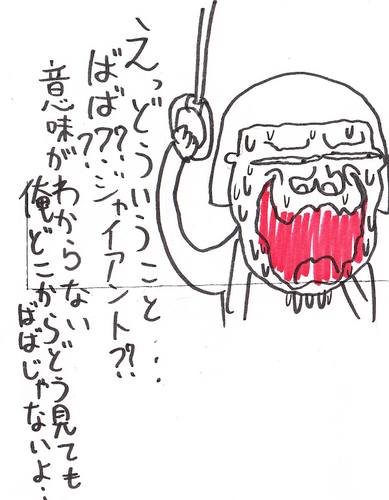 えっどういうこと…
ばば??ジャイアント??
意味がわからない
俺どこからどう見ても
ばばじゃないよ…